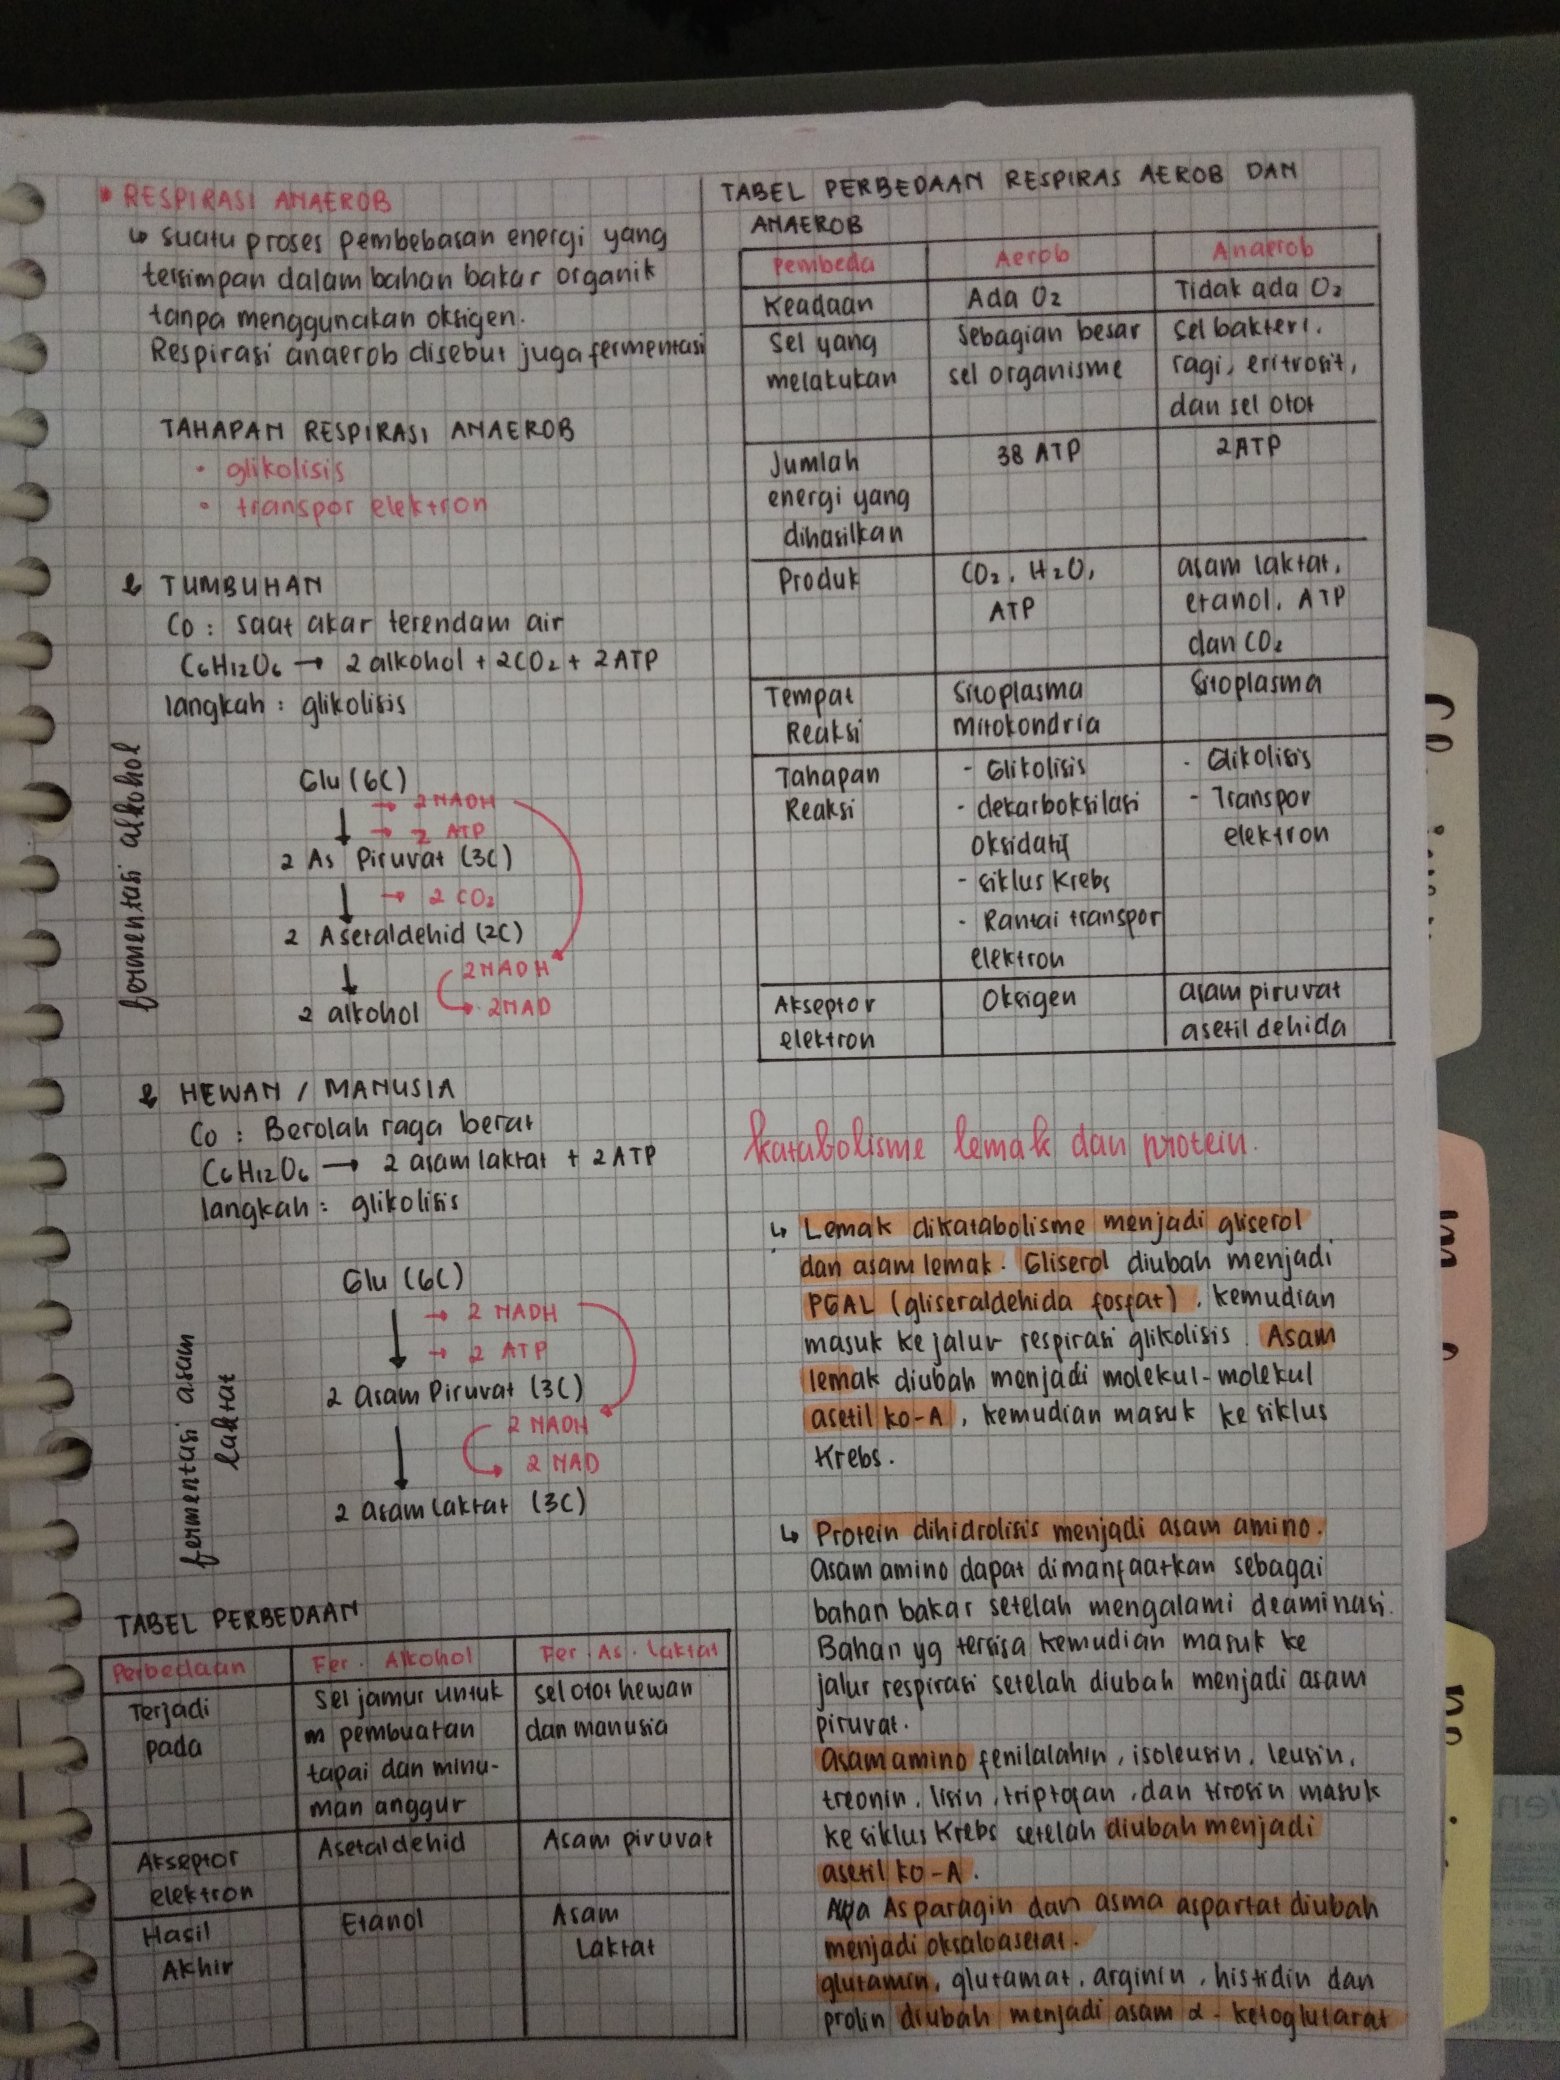 RESPIRASI ANAEROB
↳ suatu proses pembebasan energi yang
tersimpan dalam bahan bakar organik
tanpa menggunakan oksigen.
Respirasi anaerob disebut juga fermentasi
TAHAPAN RESPIRASI ANAEROB
• glikolisis
• transpor elektron
TUMBUHAN
Co : saat akar terendam air
C6H12O6 → 2 alkohol + 2CO2 + 2 ATP
langkah : glikolisis
fermentasi alkohol
Glu (6C)
→ 2 NADH
→ 2 ATP
2 As Piruvat (3C)
→ 2 CO2
2 Asetaldehid (2C)
2 NADH
2 alkohol → 2NAD
HEWAN / MANUSIA
Co : Berolah raga berat
C6H12O6 → 2 asam laktat + 2 ATP
langkah : glikolisis
fermentasi asam
laktat
Glu (6C)
→ 2 NADH
→ 2 ATP
2 Asam Piruvat (3C)
2 NADH
2 NAD
2 asam laktat (3C)
TABEL PERBEDAAN
Perbedaan Fer. Alkohol Fer. As. Laktat
Terjadi sel jamur untuk sel otot hewan
pada m pembuatan dan manusia
tapai dan minu-
man anggur
Akseptor Asetaldehid Asam piruvat
elektron
Hasil Etanol Asam
Akhir Laktat
TABEL PERBEDAAN RESPIRAS AEROB DAN
ANAEROB
Pembeda Aerob Anaerob
Keadaan Ada O2 Tidak ada O2
Sel yang Sebagian besar sel bakteri,
melakukan sel organisme ragi, eritrosit,
dan sel otot
Jumlah 38 ATP 2 ATP
energi yang
dihasilkan
Produk CO2, H2O, asam laktat,
ATP etanol, ATP
dan CO2
Tempat Sitoplasma Sitoplasma
Reaksi mitokondria
Tahapan - Glikolisis - Glikolisis
Reaksi - dekarboksilasi - Transpor
oksidatif elektron
- siklus Krebs
- Rantai transpor
elektron
Akseptor Oksigen asam piruvat
elektron asetil dehida
katabolisme lemak dan protein.
↳ Lemak dikatabolisme menjadi gliserol
dan asam lemak. Gliserol diubah menjadi
PGAL (gliseraldehida fosfat). kemudian
masuk ke jalur respirasi glikolisis. Asam
lemak diubah menjadi molekul-molekul
asetil ko-A, kemudian masuk ke siklus
Krebs.
↳ Protein dihidrolisis menjadi asam amino.
asam amino dapat dimanfaatkan sebagai
bahan bakar setelah mengalami deaminasi.
Bahan yg tersisa kemudian masuk ke
jalur respirasi setelah diubah menjadi asam
piruvat.
asam amino fenilalahin, isoleusin, leusin,
treonin, lisin, triptofan, dan tirosin masuk
ke siklus Krebs setelah diubah menjadi
asetil ko-A.
Asparagin dan asma aspartat diubah
menjadi oksaloasetat.
glutamin, glutamat, arginin, histidin dan
prolin diubah menjadi asam α-ketoglutarat